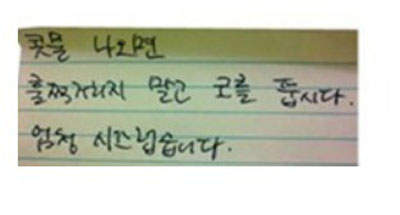 콧물 나오면
훌쩍거리지 말고 코를 풉시다.
엄청 시끄럽습니다.